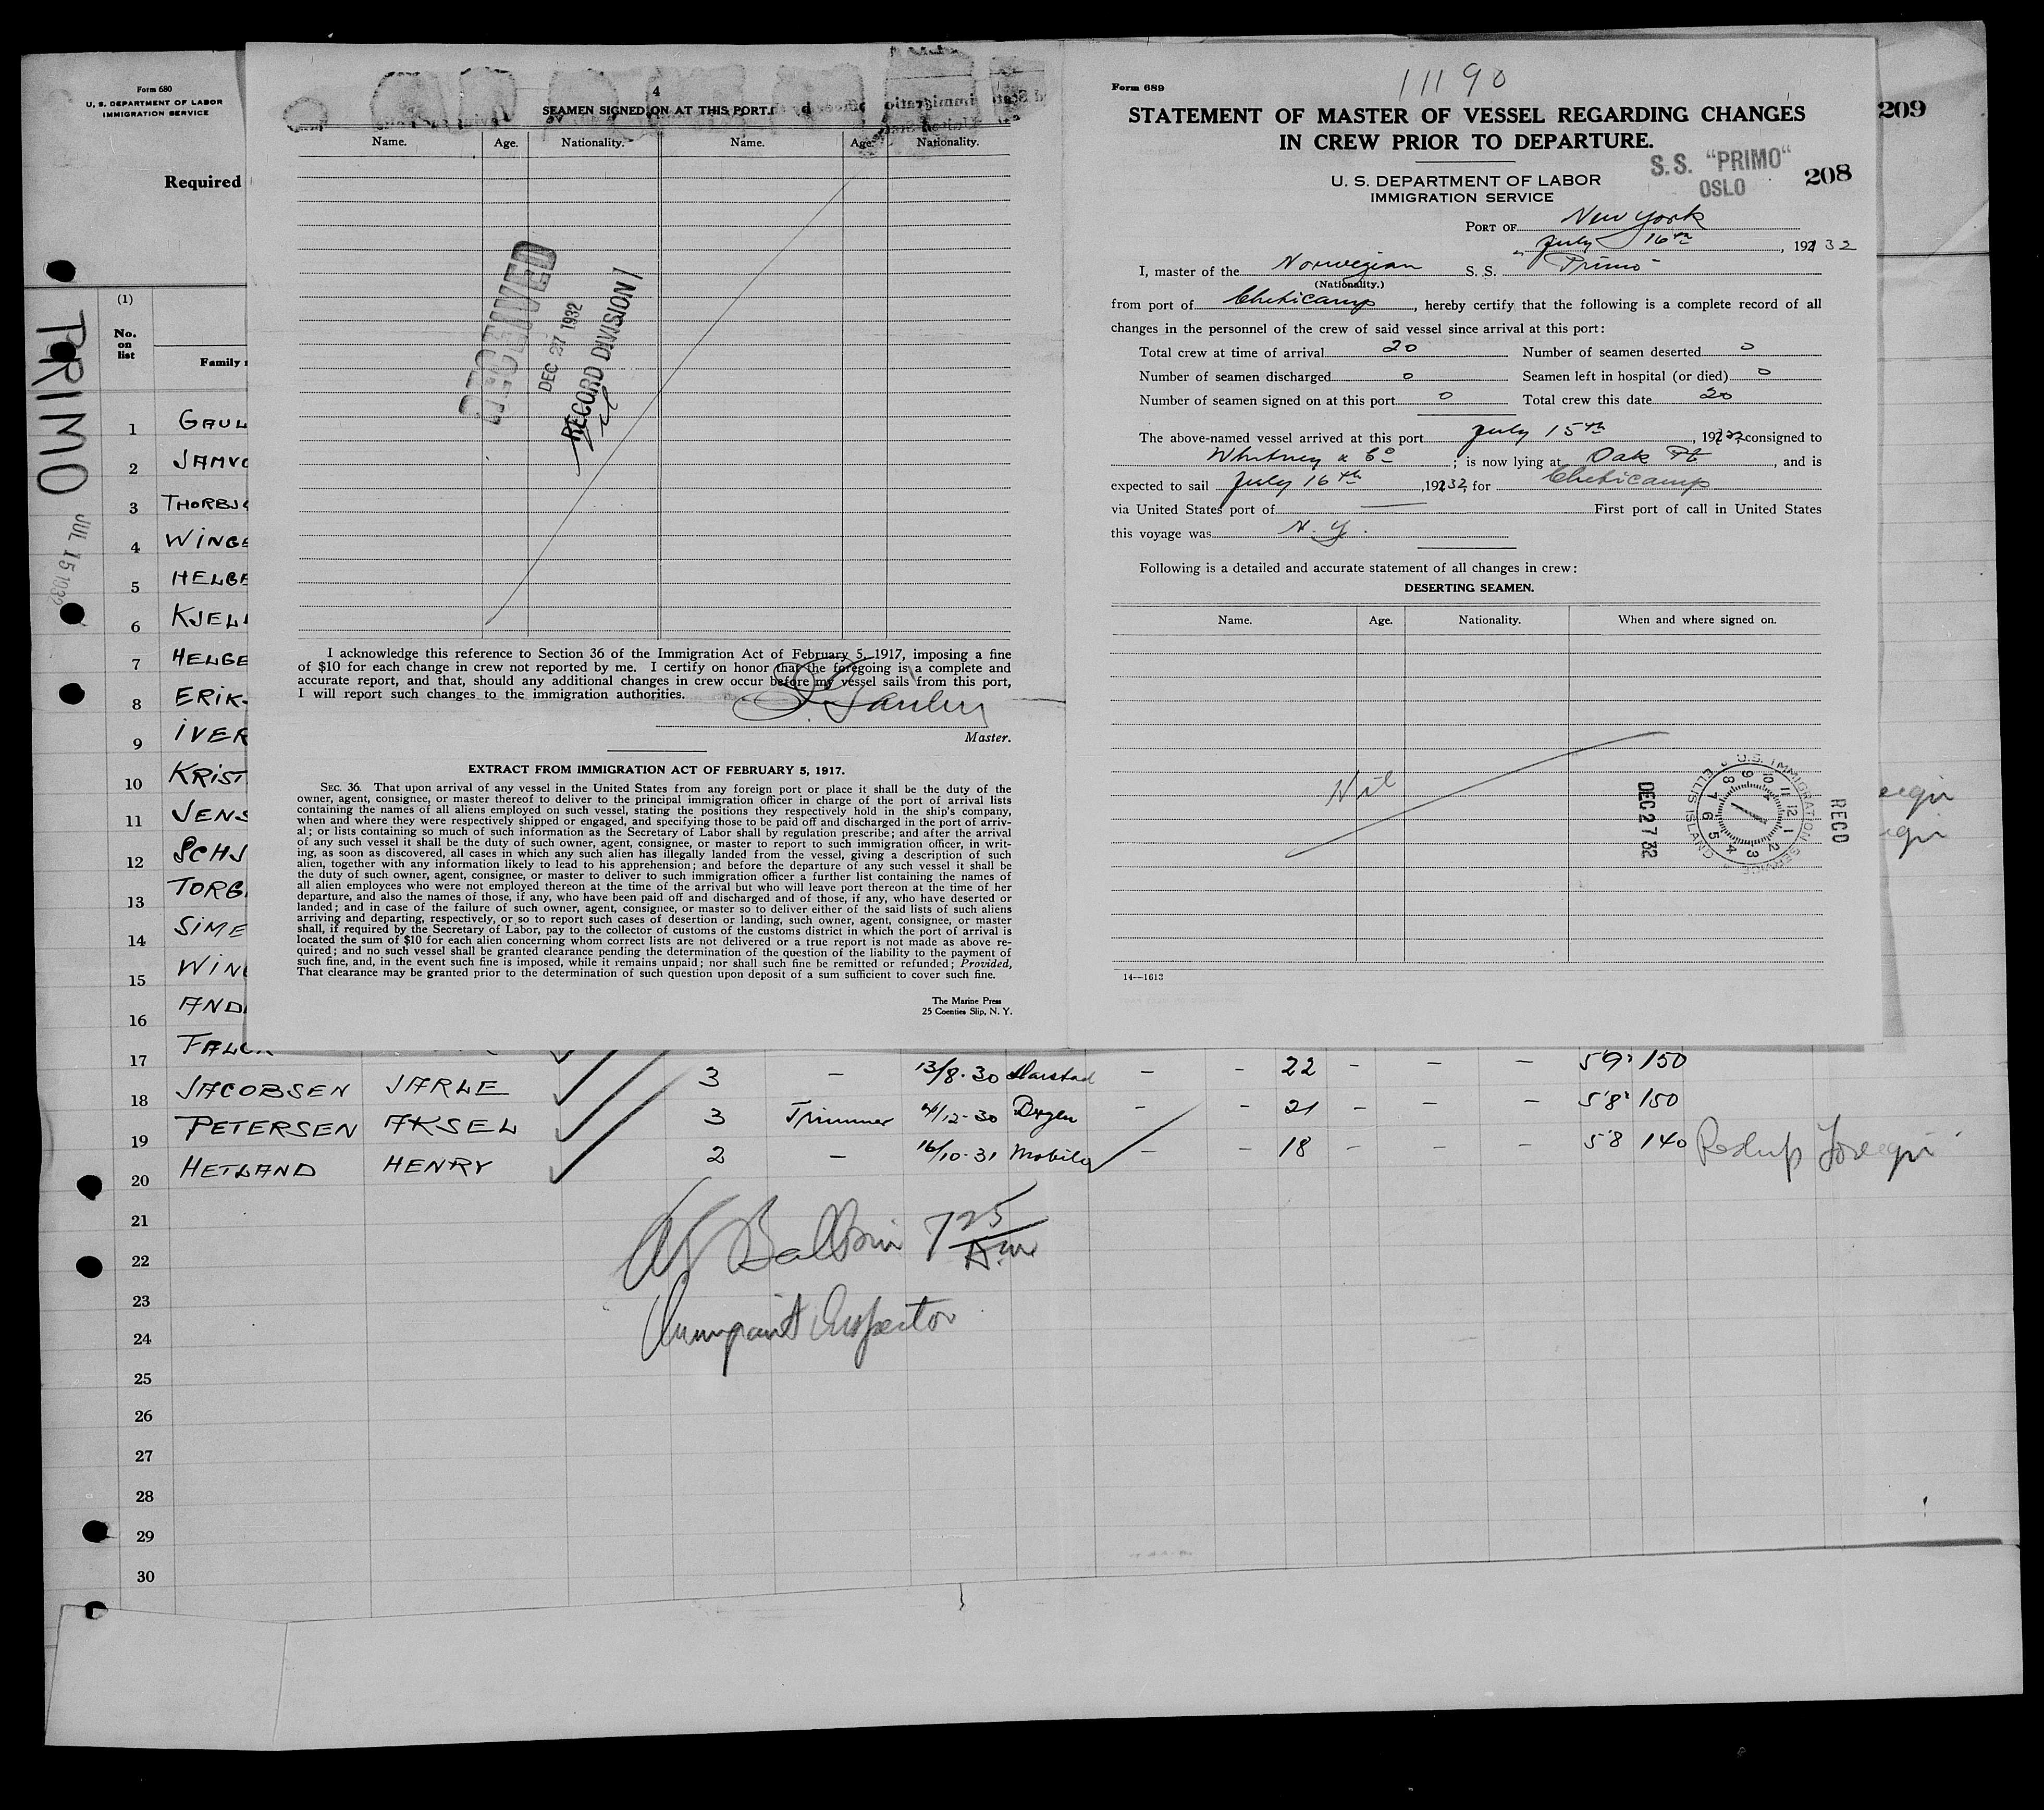 Form 680
U. S. DEPARTMENT OF LABOR
IMMIGRATION SERVICE
Required
(1)
No.
on
list
Family
PRIMO
JUL 15 1932
1 GAUL
2 JAMVO
3 THORBJO
4 WINGE
5 HELGE
6 KJEL
7 HELGE
8 ERIK
9 IVER
10 KRIST
11 JENS
12 SCHJ
13 TORG
14 SIME
15 WIN
16 AND
17
18 JACOBSEN JARLE 3 — 13/8-30 Harstad — - 22 - — — 5'9" 150
19 PETERSEN AKSEL 3 Trimmer 4/12-30 — - 21 - — — 5'8" 150
20 HETLAND HENRY 2 — 16/10-31 Mobile — - 18 - — — 5'8 140 Foreign
21
22
23
24
25
26
27
28
29
30
Baldwin 7 25 A.m
Immigrant Inspector
4
SEAMEN SIGNED ON AT THIS PORT.
Name. Age. Nationality. Name. Age. Nationality.
RECEIVED
DEC 27 1932
RECORD DIVISION
I acknowledge this reference to Section 36 of the Immigration Act of February 5, 1917, imposing a fine
of $10 for each change in crew not reported by me. I certify on honor that the foregoing is a complete and
accurate report, and that, should any additional changes in crew occur before my vessel sails from this port,
I will report such changes to the immigration authorities.
Master.
EXTRACT FROM IMMIGRATION ACT OF FEBRUARY 5, 1917.
SEC. 36. That upon arrival of any vessel in the United States from any foreign port or place it shall be the duty of the
owner, agent, consignee, or master thereof to deliver to the principal immigration officer in charge of the port of arrival lists
containing the names of all aliens employed on such vessel, stating the positions they respectively hold in the ship's company,
when and where they were respectively shipped or engaged, and specifying those to be paid off and discharged in the port of arriv-
al; or lists containing so much of such information as the Secretary of Labor shall by regulation prescribe; and after the arrival
of any such vessel it shall be the duty of such owner, agent, consignee, or master to report to such immigration officer, in writ-
ing, as soon as discovered, all cases in which any such alien has illegally landed from the vessel, giving a description of such
alien, together with any information likely to lead to his apprehension; and before the departure of any such vessel it shall be
the duty of such owner, agent, consignee, or master to deliver to such immigration officer a further list containing the names of
all alien employees who were not employed thereon at the time of the arrival but who will leave port thereon at the time of her
departure, and also the names of those, if any, who have been paid off and discharged and of those, if any, who have deserted or
landed; and in case of the failure of such owner, agent, consignee, or master so to deliver either of the said lists of such aliens
arriving and departing, respectively, or so to report such cases of desertion or landing, such owner, agent, consignee, or master
shall, if required by the Secretary of Labor, pay to the collector of customs of the customs district in which the port of arrival is
located the sum of $10 for each alien concerning whom correct lists are not delivered or a true report is not made as above re-
quired; and no such vessel shall be granted clearance pending the determination of the question of the liability to the payment of
such fine, and, in the event such fine is imposed, while it remains unpaid; nor shall such fine be remitted or refunded; Provided,
That clearance may be granted prior to the determination of such question upon deposit of a sum sufficient to cover such fine.
The Marine Press
25 Coenties Slip, N. Y.
Form 689
11190
STATEMENT OF MASTER OF VESSEL REGARDING CHANGES
IN CREW PRIOR TO DEPARTURE.
S. S. "PRIMO"
OSLO
208
209
U. S. DEPARTMENT OF LABOR
IMMIGRATION SERVICE
PORT OF New York
July 16th, 1932
I, master of the Norwegian S. S. "Primo"
(Nationality.)
from port of Cheticamp, hereby certify that the following is a complete record of all
changes in the personnel of the crew of said vessel since arrival at this port:
Total crew at time of arrival 20 Number of seamen deserted 0
Number of seamen discharged 0 Seamen left in hospital (or died) 0
Number of seamen signed on at this port 0 Total crew this date 20
The above-named vessel arrived at this port July 15th, 1932, consigned to
Whitney & Co; is now lying at Oak Pt, and is
expected to sail July 16th, 1932, for Cheticamp
via United States port of — First port of call in United States
this voyage was N. Y.
Following is a detailed and accurate statement of all changes in crew:
DESERTING SEAMEN.
Name. Age. Nationality. When and where signed on.
Nil
DEC 27 32
U.S. IMMIGRATION SERVICE ELLIS ISLAND
RECD
14—1613